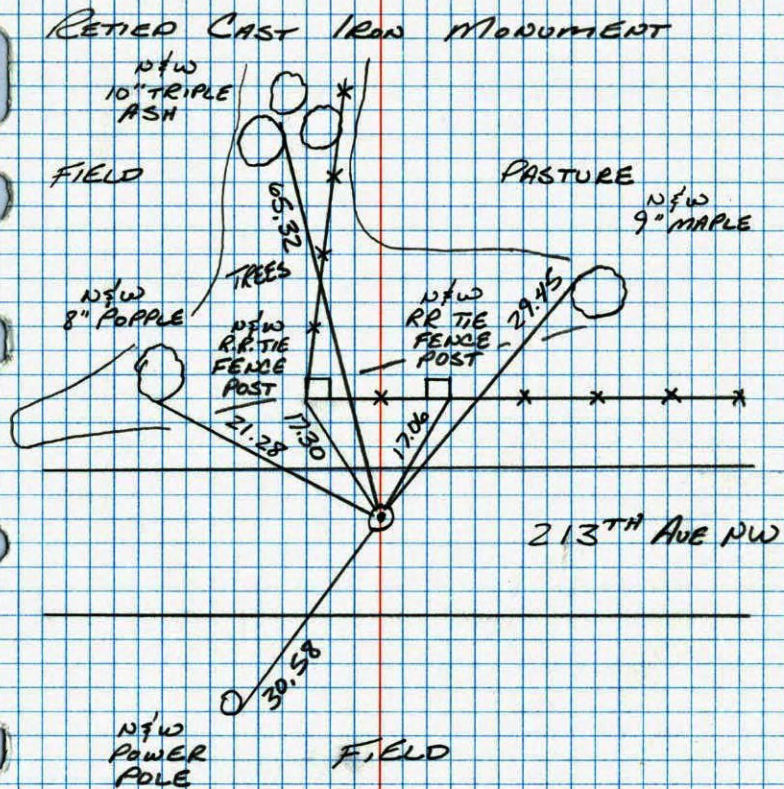 RETIED CAST IRON MONUMENT
N&W
10" TRIPLE
ASH
FIELD
PASTURE
N&W
9" MAPLE
65.32
TREES
29.45
N&W
8" POPPLE
N&W
R.R. TIE
FENCE
POST
N&W
RR TIE
FENCE
POST
21.28
17.30
17.06
213TH AVE NW
30.58
N&W
POWER
POLE
FIELD